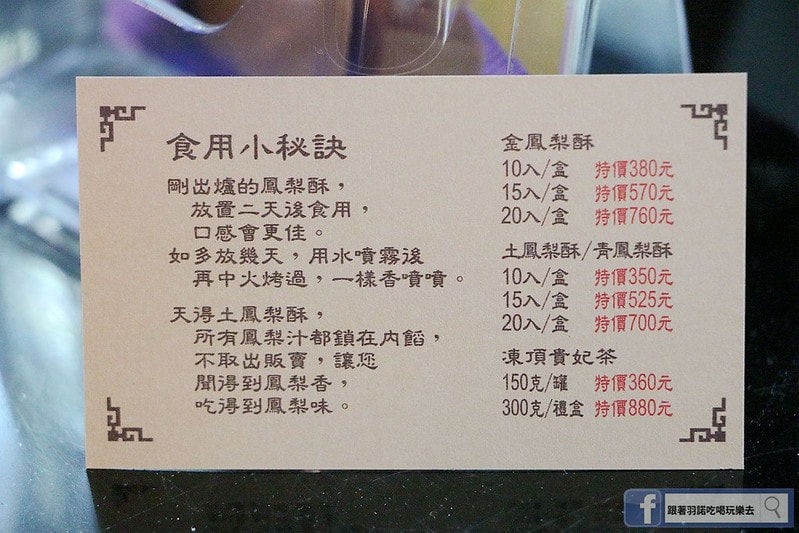 食用小秘訣
剛出爐的鳳梨酥，
放置二天後食用，
口感會更佳。
如多放幾天，用水噴霧後
再中火烤過，一樣香噴噴。
天得土鳳梨酥，
所有鳳梨汁都鎖在內餡，
不取出販賣，讓您
聞得到鳳梨香，
吃得到鳳梨味。
金鳳梨酥
10入/盒 特價380元
15入/盒 特價570元
20入/盒 特價760元
土鳳梨酥/青鳳梨酥
10入/盒 特價350元
15入/盒 特價525元
20入/盒 特價700元
凍頂貴妃茶
150克/罐 特價360元
300克/禮盒 特價880元
f 跟著羽諾吃喝玩樂去